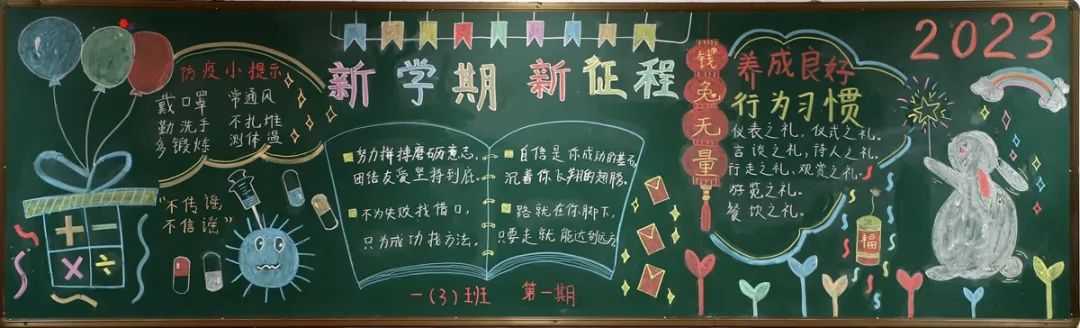 防疫小提示
戴口罩 常通风
勤洗手 不扎堆
多锻炼 测体温
"不传谣
不信谣"
+ −
× ÷
新学期 新征程
努力拼搏磨砺意志,
团结友爱坚持到底。
不为失败找借口,
只为成功找方法。
自信是你成功的基石,
沉着你飞翔的翅膀。
路就在你脚下,
只要走就能达到远方
一(3)班 第一期
钱兔无量
养成良好
行为习惯
仪表之礼,仪式之礼。
言谈之礼,待人之礼。
行走之礼,观赏之礼。
游览之礼。
餐饮之礼。
福
2023